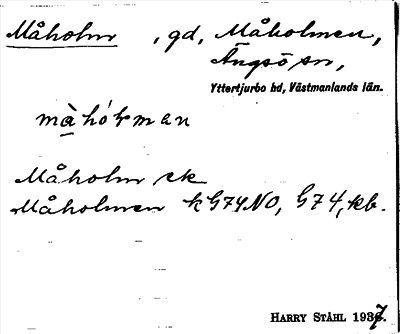 Måholm, gd, Måholmen,
Ängsö sn,
Yttertjurbo hd, Västmanlands län.
mà̱hór̀man
Måholm ek
Måholmen k G74NO, G74, kb.
HARRY STÅHL 1937.